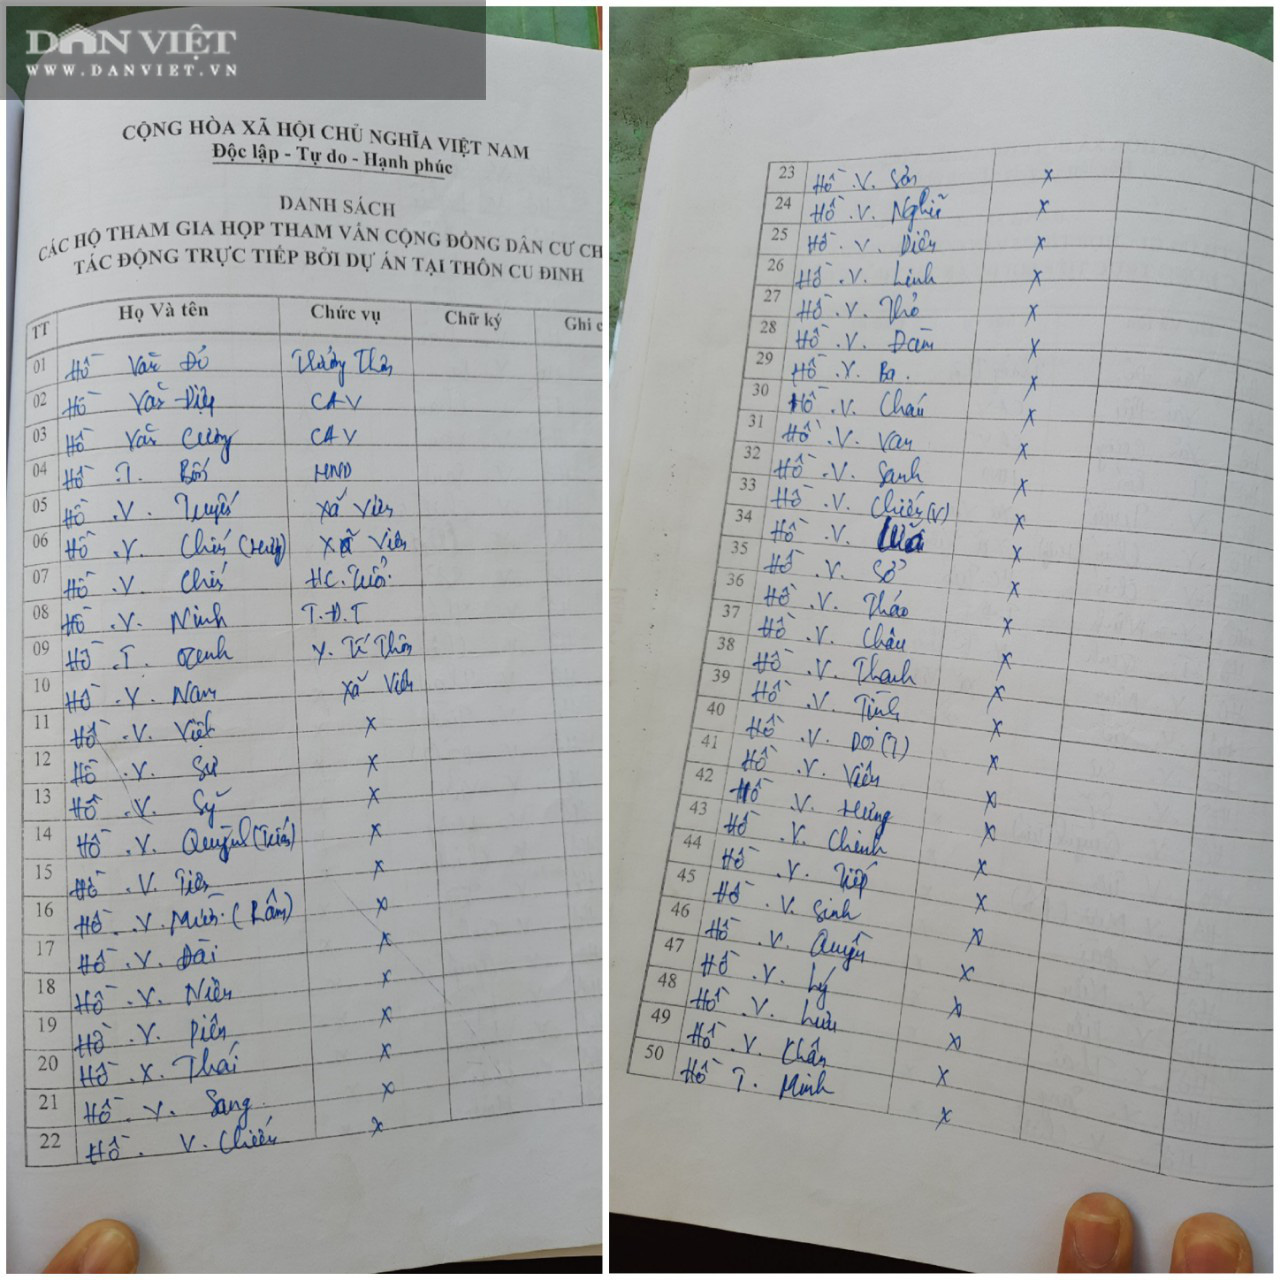 DÂN VIỆT
WWW.DANVIET.VN
CỘNG HÒA XÃ HỘI CHỦ NGHĨA VIỆT NAM
Độc lập - Tự do - Hạnh phúc
DANH SÁCH
CÁC HỘ THAM GIA HỌP THAM VẤN CỘNG ĐỒNG DÂN CƯ CH
TÁC ĐỘNG TRỰC TIẾP BỞI DỰ ÁN TẠI THÔN CU ĐINH
TT Họ Và tên Chức vụ Chữ ký Ghi c
01 Hồ Văn Đó Trưởng Thôn
02 Hồ Văn Điệp CAV
03 Hồ Văn Cương CAV
04 Hồ .T. HND
05 Hồ .V. Xã Viên
06 Hồ .V. Xã Viên
07 Hồ .V. HC.
08 Hồ .V. Ninh T.Đ.T
09 Hồ .T. Y. Tế Thôn
10 Hồ .V. Nam Xã Viên
11 Hồ .V. Việt x
12 Hồ .V. Sự x
13 Hồ .V. Sỹ x
14 Hồ .V. x
15 Hồ .V. Tiên x
16 Hồ .V. (Râm) x
17 Hồ .V. Đài x
18 Hồ .V. Niên x
19 Hồ .V. x
20 Hồ .X. Thái x
21 Hồ .V. Sang x
22 Hồ . V. Chiến x
23 Hồ .V. Sơn x
24 Hồ .V. Nghĩ x
25 Hồ .V. x
26 Hồ .V. Linh x
27 Hồ .V. Thỏ x
28 Hồ .V. Đàm x
29 Hồ .V. Ba . x
30 Hồ .V. x
31 Hồ .V. Van x
32 Hồ .V. Sanh x
33 Hồ .V. Chiến (V) x
34 Hồ .V. x
35 Hồ .V. Sở x
36 Hồ .V. Tháo x
37 Hồ .V. Châu x
38 Hồ .V. Thanh x
39 Hồ .V. Tình x
40 Hồ .V. (T) x
41 Hồ .V. Viên x
42 Hồ .V. Hưng x
43 Hồ .V. Chinh x
44 Hồ .V. Tiếp x
45 Hồ .V. Sinh x
46 Hồ .V. x
47 Hồ .V. Lý x
48 Hồ .V. Lưu x
49 Hồ .V. x
50 Hồ T. Minh x